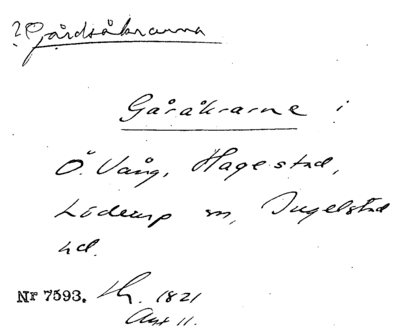 ? Gårdsåkrarna
Gåråkrarne i
Ö. Vång, Hagestad,
Löderup sn, Ingelstad
hd.
Nr 7593. Th. 1821
Akt 11.